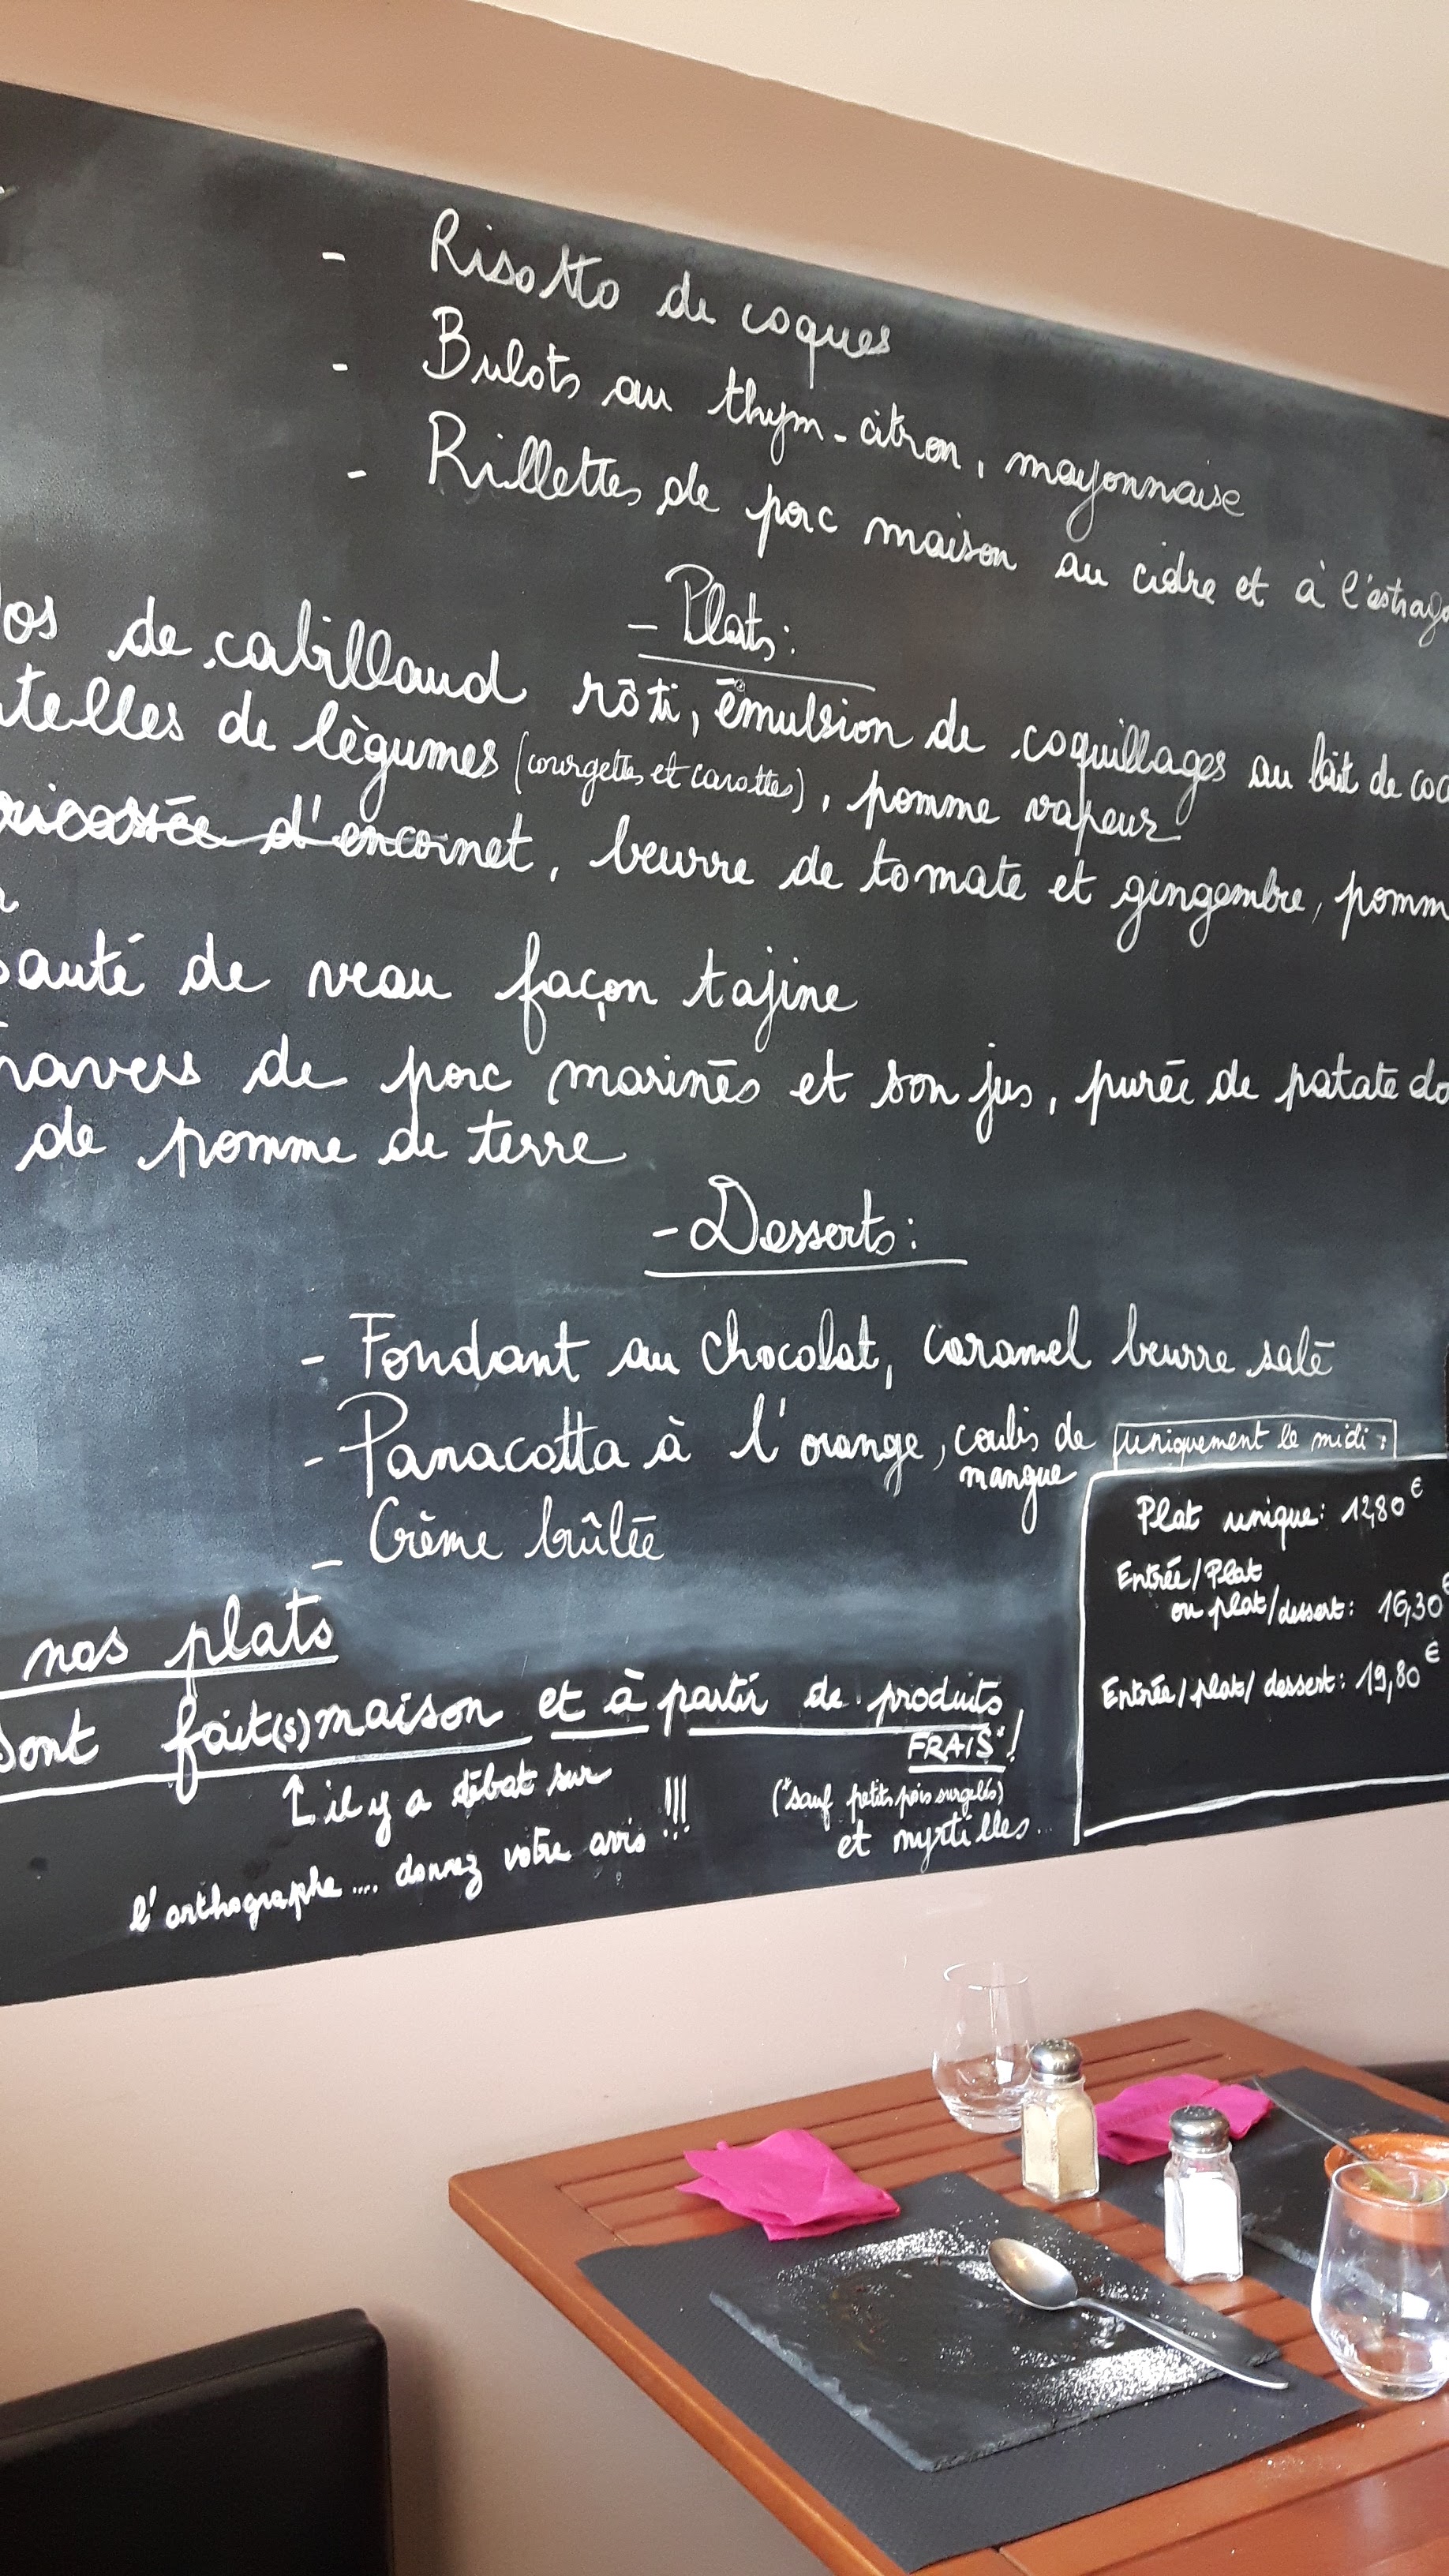 - Risotto de coques
- Bulots au thym-citron, mayonnaise
- Rillettes de porc maison au cidre et à l'estrago
- Plats:
dos de cabillaud rôti, émulsion de coquillages au lait de coc
telles de lègumes (courgettes et carottes), pomme vapeur
ricassée d'encornet, beurre de tomate et gingembre, pomm
sauté de veau façon tajine
ravers de porc marinés et son jus, purée de patate do
de pomme de terre
- Desserts:
- Fondant au chocolat, caramel beurre salé
- Panacotta à l'orange, coulis de
mangue
- Crème brûlée
uniquement le midi:
Plat unique: 12,80€
Entrée/Plat
ou plat/dessert: 16,30€
Entrée/plat/dessert: 19,80€
nos plats
sont fait(s) maison et à partir de produits
FRAIS*!
↑ il y a débat sur
l'orthographe .... donnez votre avis !!!
(*sauf petits pois surgelés)
et myrtilles...